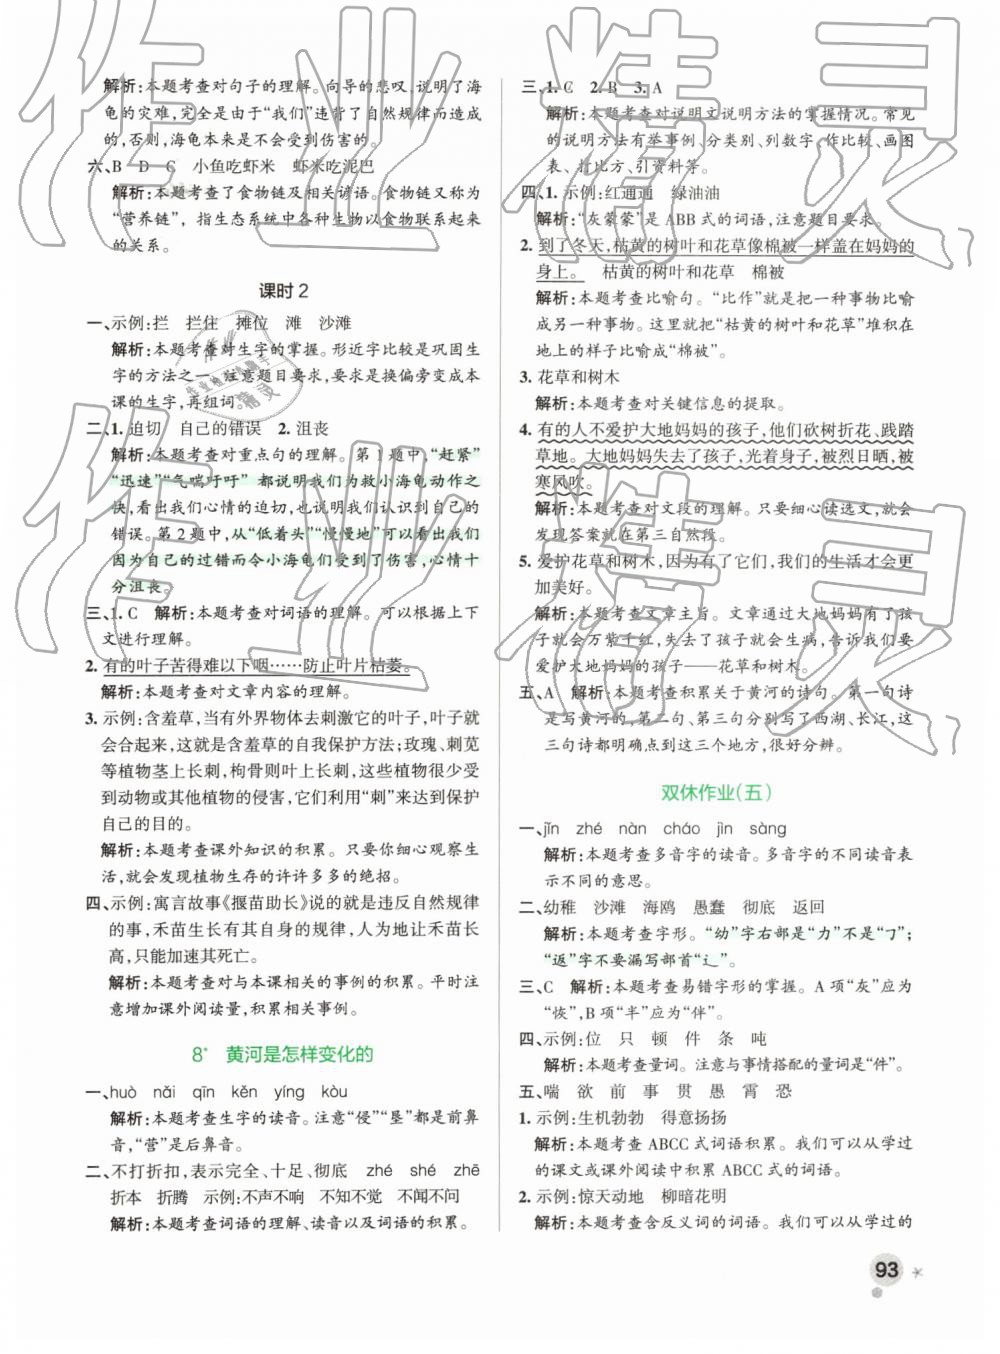 解析:本题考查对句子的理解。向导的悲叹,说明了海
龟的灾难,完全是由于“我们”违背了自然规律而造成
的,否则,海龟本来是不会受到伤害的。
六、B D C 小鱼吃虾米 虾米吃泥巴
解析:本题考查了食物链及相关谚语。食物链又称为
“营养链”，指生态系统中各种生物以食物联系起来
的关系。
课时2
一、示例:拦 拦住 摊位 滩 沙滩
解析:本题考查对生字的掌握。形近字比较是巩固生
字的方法之一,注意题目要求,是换偏旁变成本
课的生字,再组词。
二、1.迫切 自己的错误 2.沮丧
解析:本题考查对重点句的理解。第1题中,“赶紧”
“迅速”“气喘吁吁”都说明我们为救小海龟动作之
快,看出我们心情的迫切,也说明我们认识到自己的
错误。第2题中,从“低着头”“慢慢地”可以看出我们
因为自己的过错而令小海龟们受到了伤害,心情十
分沮丧。
三、1.C 解析:本题考查对词语的理解。可以根据上下
文进行理解。
2.有的叶子苦得难以下咽……防止叶片枯萎。
解析:本题考查对文章内容的理解。
3.示例:含羞草,当有外界物体去刺激它的叶子,叶子就
会合起来,这就是含羞草的自我保护方法;玫瑰、刺苋
等植物茎上长刺,枸骨则叶上长刺,这些植物很少受
到动物或其他植物的侵害,它们利用“刺”来达到保护
自己的目的。
解析:本题考查课外知识的积累。只要你细心观察生
活,就会发现植物生存的许许多多的绝招。
四、示例:寓言故事《揠苗助长》说的就是违反自然规律
的事,禾苗生长有其自身的规律,人为地让禾苗长
高,只能加速其死亡。
解析:本题考查对与本课相关的事例的积累。平时注
意增加课外阅读量,积累相关事例。
8* 黄河是怎样变化的
一、huò nǎi qīn kěn yíng kòu
解析:本题考查生字的读音。注意“侵”“垦”都是前鼻
音,“营”是后鼻音。
二、不打折扣,表示完全、十足、彻底 zhé shé zhē
折本 折腾 示例:不声不响 不知不觉 不闻不问
解析:本题考查词语的理解、读音以及词语的积累。
三、1.C 2.B 3.A
解析:本题考查对说明文说明方法的掌握情况。常见
的说明方法有举事例、分类别、列数字、作比较、画图
表、打比方、引资料等。
四、1.示例:红通通 绿油油
解析:“灰蒙蒙”是ABB式的词语,注意题目要求。
2.到了冬天,枯黄的树叶和花草像棉被一样盖在妈妈的
身上。 枯黄的树叶和花草 棉被
解析:本题考查比喻句。“比作”就是把一种事物比喻
成另一种事物。这里就把“枯黄的树叶和花草”堆积在
地上的样子比喻成“棉被”。
3.花草和树木
解析:本题考查对关键信息的提取。
4.有的人不爱护大地妈妈的孩子,他们砍树折花、践踏
草地。大地妈妈失去了孩子,光着身子,被烈日晒,被
寒风吹。
解析:本题考查对文段的理解。只要细心读选文,就会
发现答案就在第三自然段。
5.爱护花草和树木,因为有了它们,我们的生活才会更
加美好。
解析:本题考查文章主旨。文章通过大地妈妈有了孩
子就会万紫千红,失去了孩子就会生病,告诉我们要
爱护大地妈妈的孩子——花草和树木。
五、A 解析:本题考查积累关于黄河的诗句。第一句诗
是写黄河的,第二句、第三句分别写了西湖、长江,这
三句诗都明确点到这三个地方,很好分辨。
双休作业(五)
一、jǐn zhé nàn cháo jìn sàng
解析:本题考查多音字的读音。多音字的不同读音表
示不同的意思。
二、幼稚 沙滩 海鸥 愚蠢 彻底 返回
解析:本题考查字形。“幼”字右部是“力”不是“㇆”;
“返”字不要漏写部首“辶”。
三、C 解析:本题考查易错字形的掌握。A项“灰”应为
“恢”,B项“半”应为“伴”。
四、示例:位 只 顿 件 条 吨
解析:本题考查量词。注意与事情搭配的量词是“件”。
五、喘 欲 前 事 贯 愚 霄 恐
1.示例:生机勃勃 得意扬扬
解析:本题考查ABCC式词语积累。我们可以从学过
的课文或课外阅读中积累ABCC式的词语。
2.示例:惊天动地 柳暗花明
解析:本题考查含反义词的词语。我们可以从学过的
93
作业精灵
作业精灵